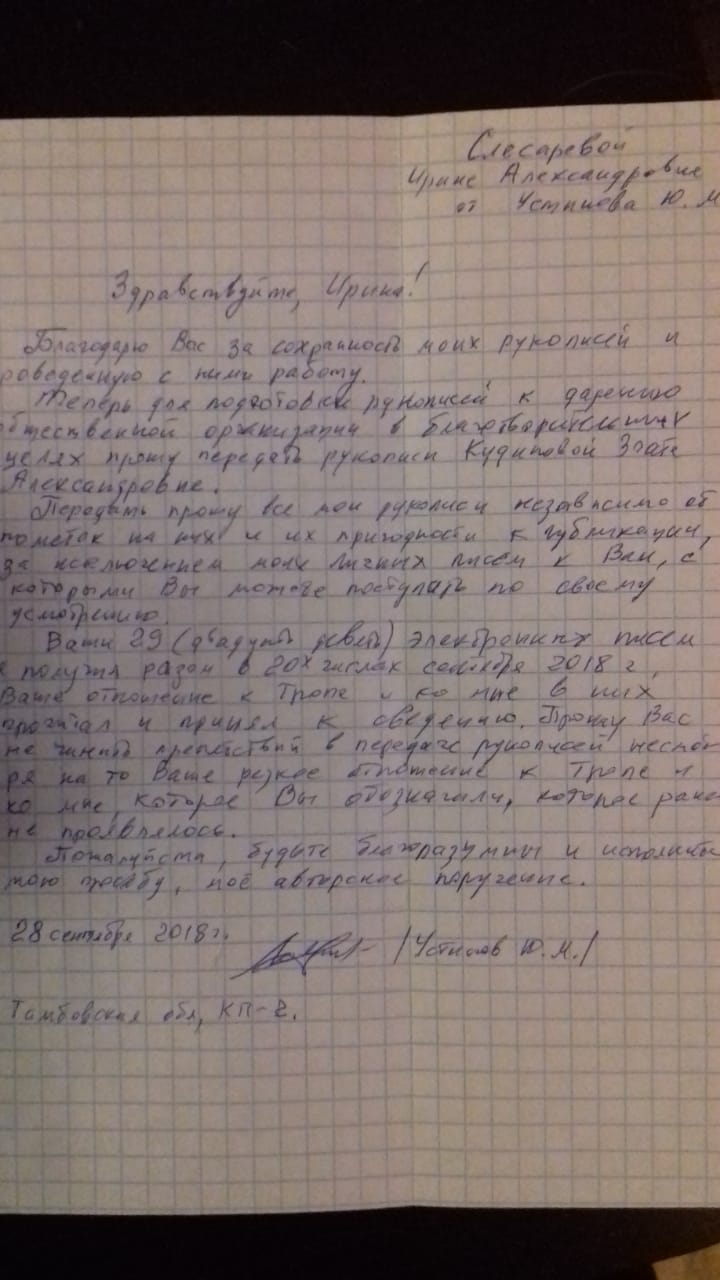 Слесаревой
Ирине Александровне
от Устинова Ю.М
Здравствуйте, Ирина!
Благодарю Вас за сохранность моих рукописей и
роведенную с ними работу.
Теперь для подготовки рукописей к дарению
бщественной организации в благотворительных
целях прошу передать рукописи Кудиновой Злате
Александровне.
Передать прошу все мои рукописи независимо от
пометок на них и их пригодности к публикации,
за исключением моих личных писем к Вам, с
которыми Вы можете поступать по своему
усмотрению.
Ваши 29 (двадцать девять) электронных писем
я получил разом в 20х числах сентября 2018 г,
Ваше отношение к Тропе и ко мне в них
прочитал и принял к сведению. Прошу Вас
не чинить препятствий в передаче рукописей несмот
ря на то Ваше резкое отношение к Тропе и
ко мне, которое Вы обозначили, которое ранее
не проявлялось.
Пожалуйста, будьте благоразумны и исполните
мою просьбу, моё авторское поручение.
28 сентября 2018г. /Устинов Ю.М./
Тамбовская обл, КП-2.